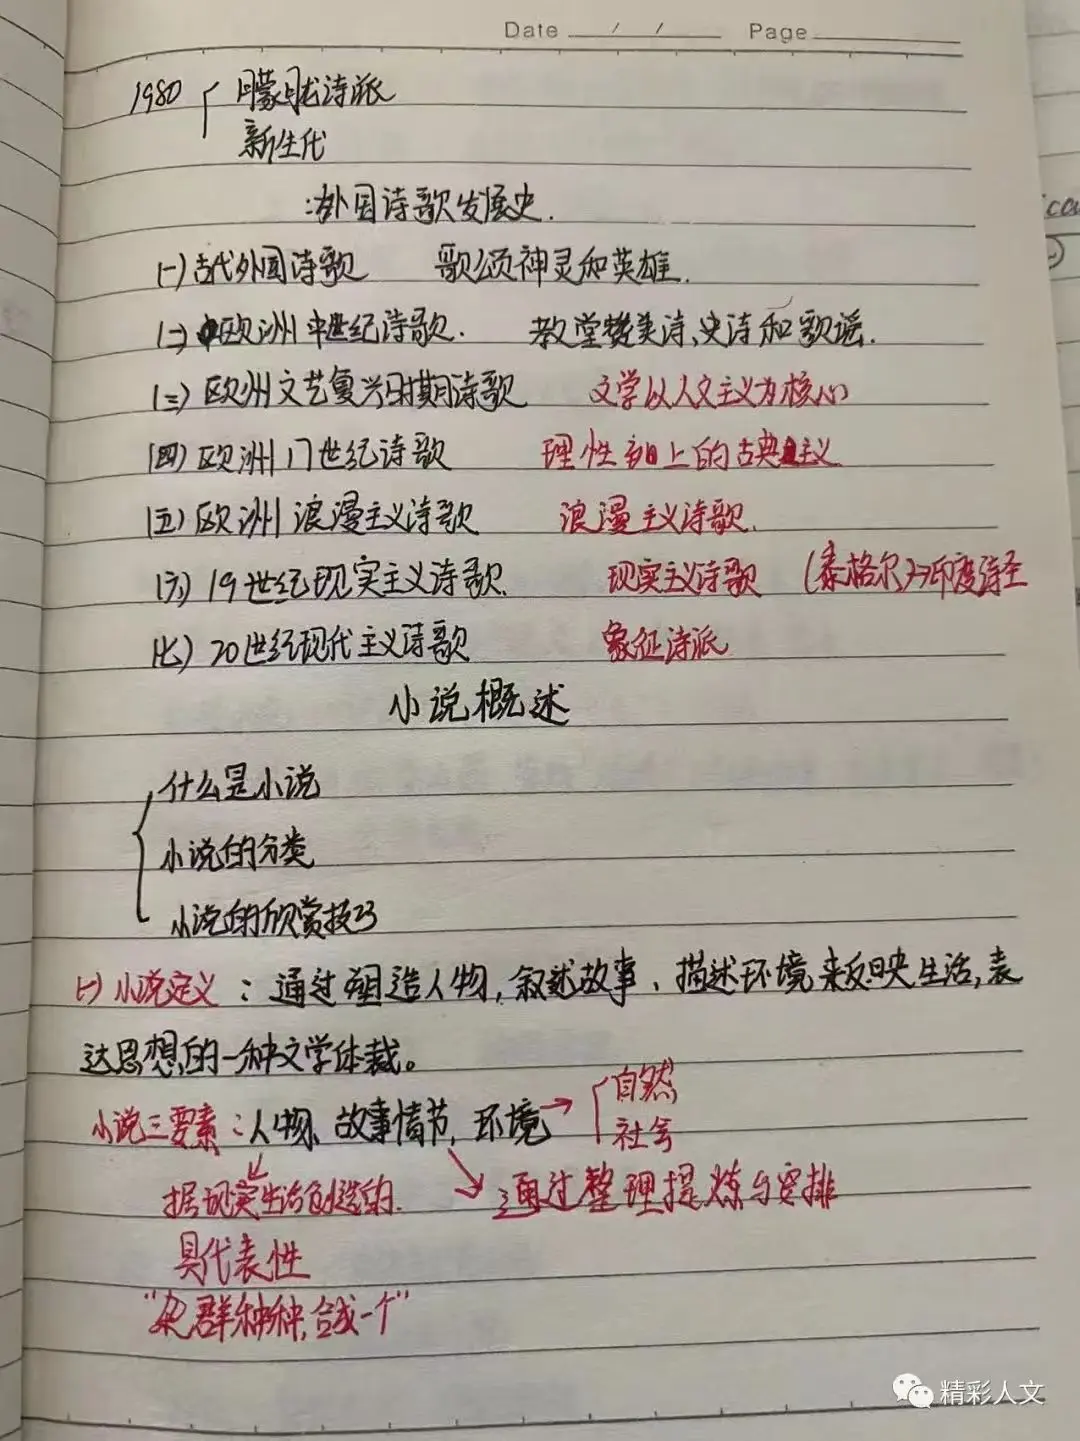 Date / / Page
1980 朦胧诗派
新生代
:外国诗歌发展史.
(一)古代外国诗歌 歌颂神灵和英雄.
(二)欧洲中世纪诗歌. 教堂赞美诗、史诗和歌谣.
(三)欧洲文艺复兴时期诗歌 文学以人文主义为核心
(四)欧洲17世纪诗歌 理性至上的古典主义
(五)欧洲浪漫主义诗歌 浪漫主义诗歌.
(六)19世纪现实主义诗歌. 现实主义诗歌 (泰格尔)→印度诗圣
(七)20世纪现代主义诗歌 象征诗派
小说概述
什么是小说
小说的分类
小说的欣赏技巧
(一)小说定义:通过塑造人物,叙述故事、描述环境来反映生活,表
达思想的一种文学体裁。
小说三要素:人物、故事情节,环境→ 自然
社会
据现实生活创造的. 通过整理提炼与安排
具代表性
"杂群种种,合成一个"
精彩人文